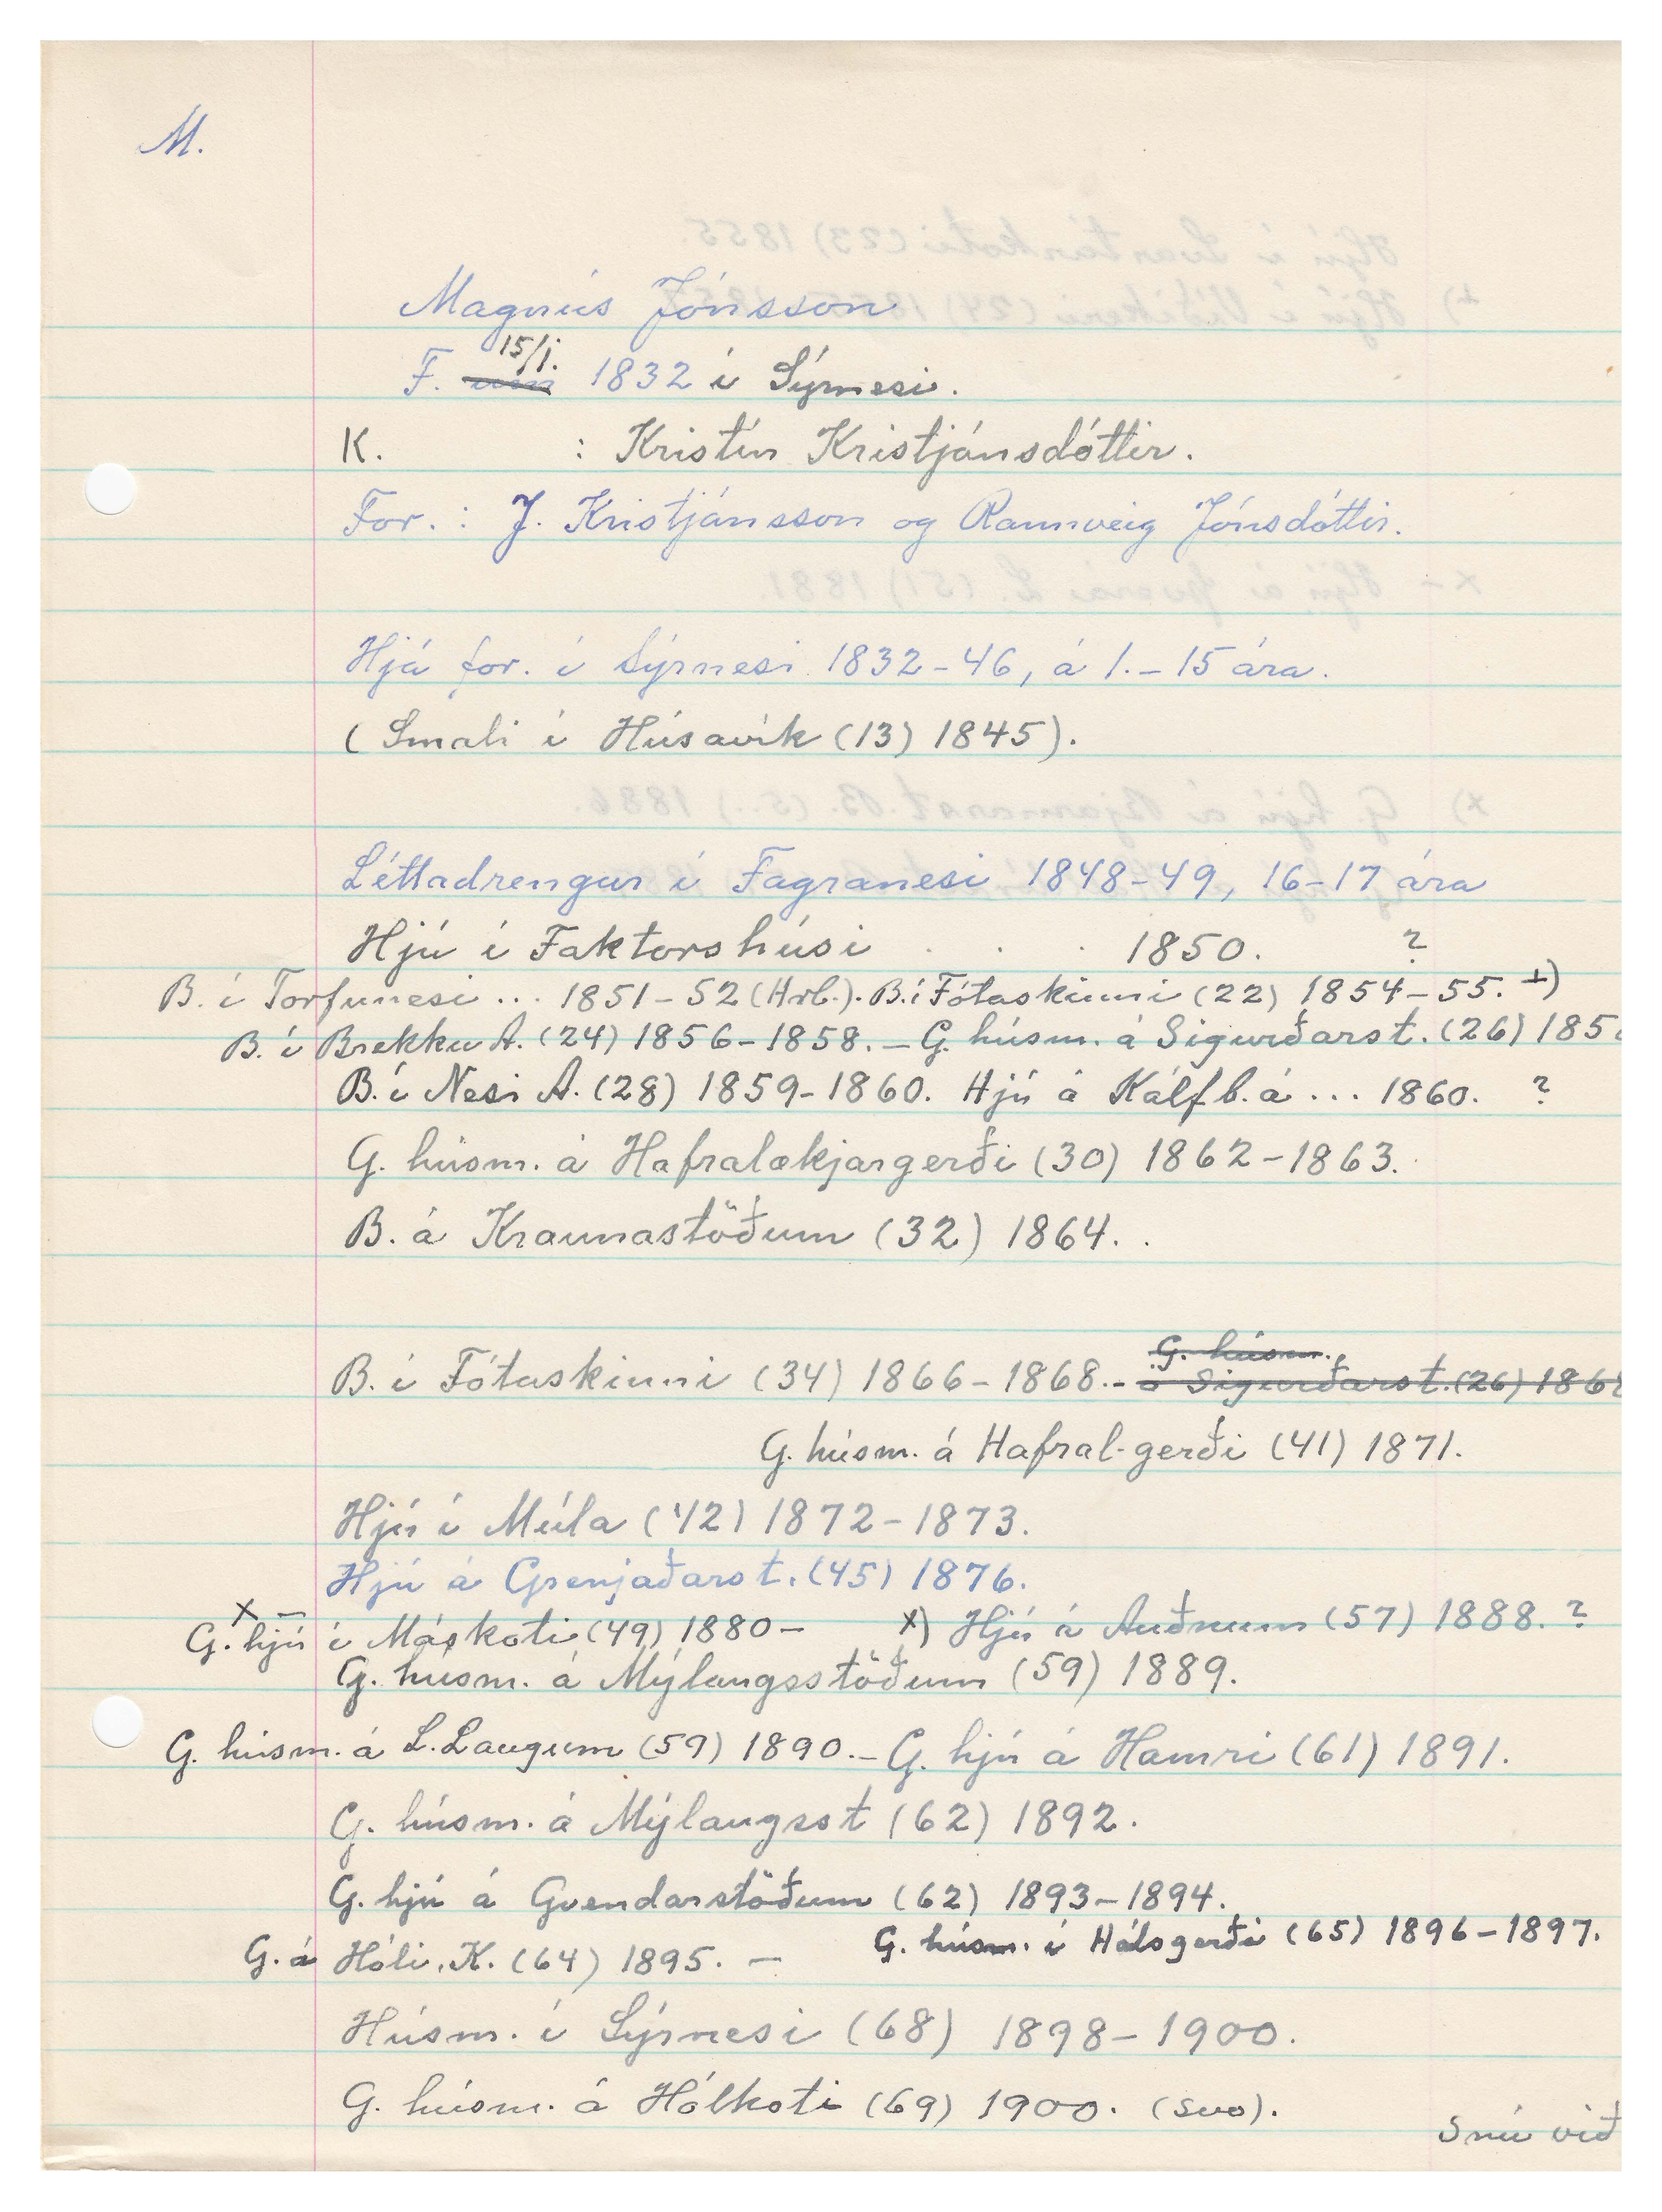 M.
Magnús Jónsson
15/1.
F. um 1832 í Sýrnesi.
K. : Kristín Kristjánsdóttir.
For. : J. Kristjánsson og Rannveig Jónsdóttir.
Hjá for. í Sýrnesi 1832-46, á 1.-15 ára.
(Smali í Húsavík (13) 1845).
Léttadrengur í Fagranesi 1848-49, 16-17 ára
Hjú í Faktorshúsi . . . 1850. ?
B. í Torfunesi ... 1851-52 (Hrb.). B. í Fótaskinni (22) 1854-55. +)
B. í Brekku A. (24) 1856-1858. - G. húsm. á Sigurðarst. (26) 185
B. í Nesi A. (28) 1859-1860. Hjú á Kálfb.á ... 1860. ?
G. húsm. á Hafralækjargerði (30) 1862-1863.
B. á Kraunastöðum (32) 1864. .
G. húsm.
B. í Fótaskinni (34) 1866-1868.- á Sigurðarst. (26) 186
G. húsm. á Hafral-gerði (41) 1871.
Hjú í Múla (42) 1872-1873.
Hjú á Grenjaðarst. (45) 1876.
x -
G. hjú í Máskoti (49) 1880- x) Hjú á Auðnum (57) 1888. ?
G. húsm. á Mýlaugsstöðum (59) 1889.
G. húsm. á L. Laugum (59) 1890.- G. hjú á Hamri (61) 1891.
G. húsm. á Mýlaugsst (62) 1892.
G. hjú á Gvendarstöðum (62) 1893-1894.
G. á Hóli, K. (64) 1895. - G. húsm. í Hálsgerði (65) 1896-1897.
Húsm. í Sýrnesi (68) 1898-1900.
G. húsm. á Hólkoti (69) 1900. (svo).
Snú við